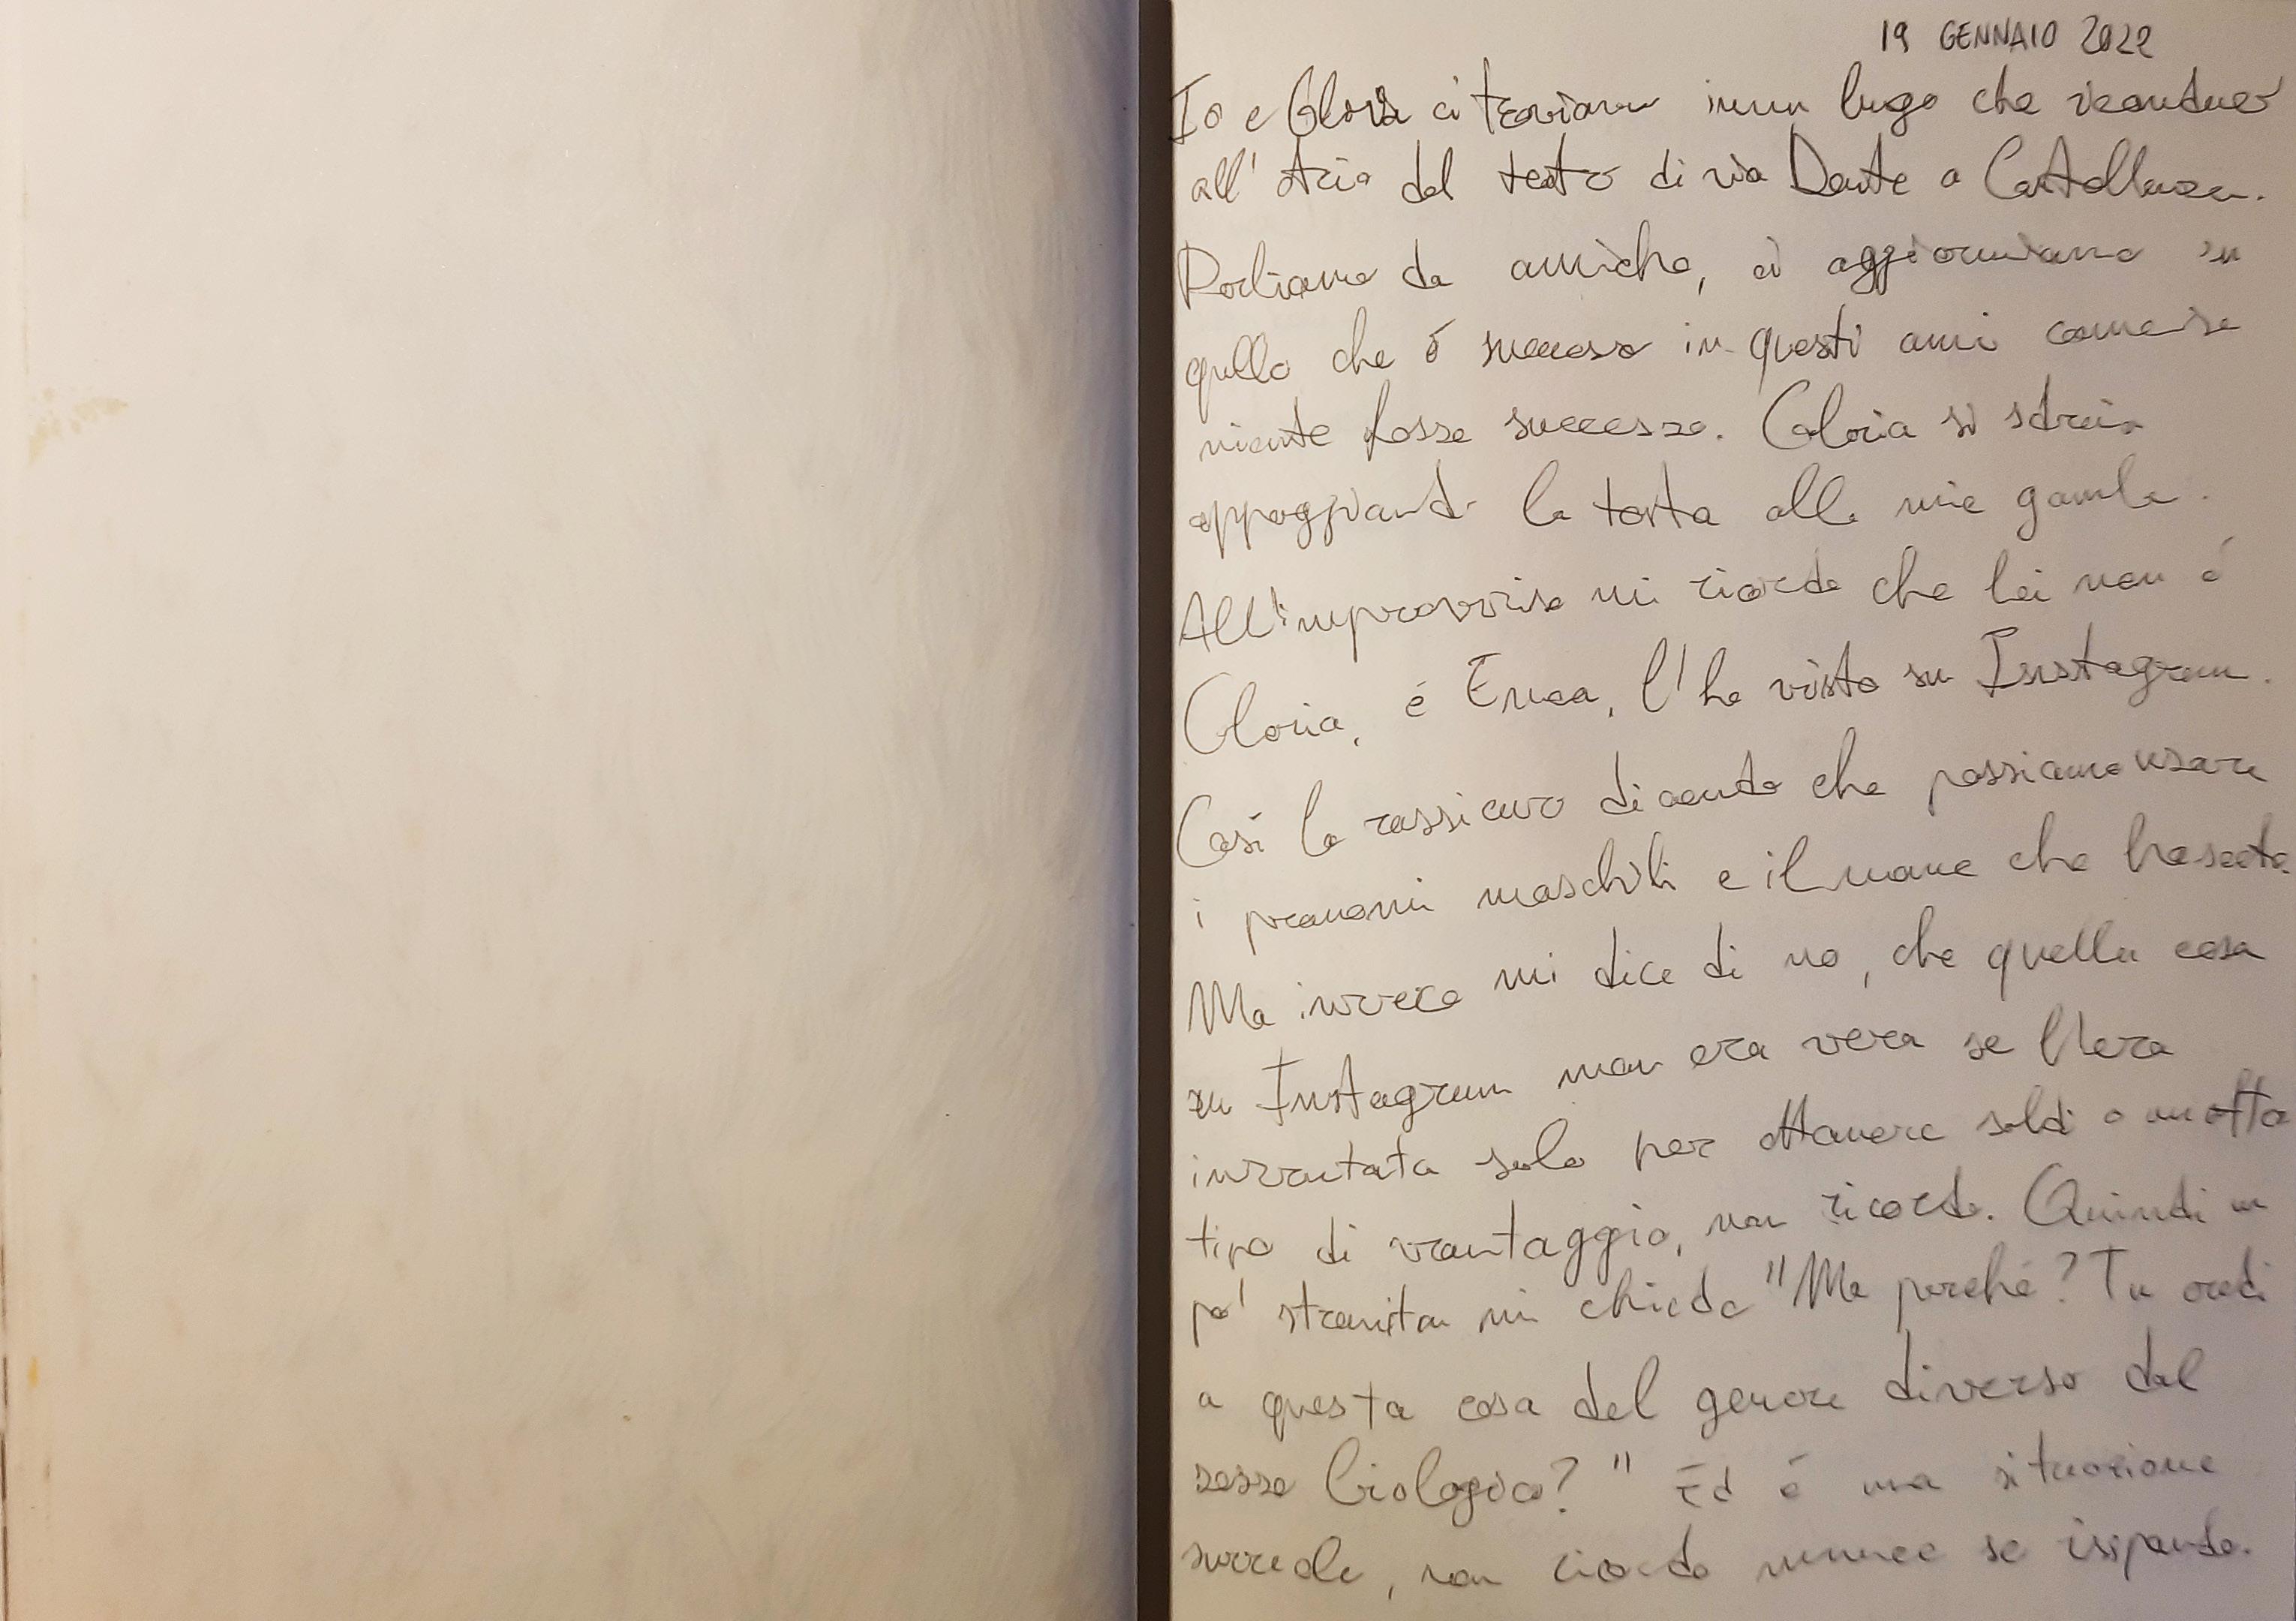 19 GENNAIO 2022
Io e Gloria ci troviamo in un luogo che riconduco
all'atrio del teatro di via Dante a Castellanza.
Parliamo da amiche, ci aggiorniamo su
quello che é successo in questi anni come se
niente fosse successo. Gloria si sdraia
appoggiando la testa alle mie gambe.
All'improvviso mi ricordo che lei non é
Gloria, é Enea, l'ho visto su Instagram.
Così lo rassicuro dicendo che possiamo usare
i pronomi maschili e il nome che ha scelto.
Ma invece mi dice di no, che quella cosa
su Instagram non era vera se l'era
inventata solo per ottenere soldi o un altro
tipo di vantaggio, non ricordo. Quindi un
po' stranita mi chiede "Ma perché? Tu credi
a questa cosa del genere diverso dal
sesso biologico?" Ed é una situazione
surreale, non ricordo nemmeno se rispondo.